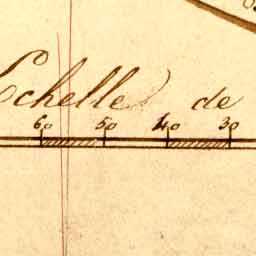 Echelle de
60 50 40 30